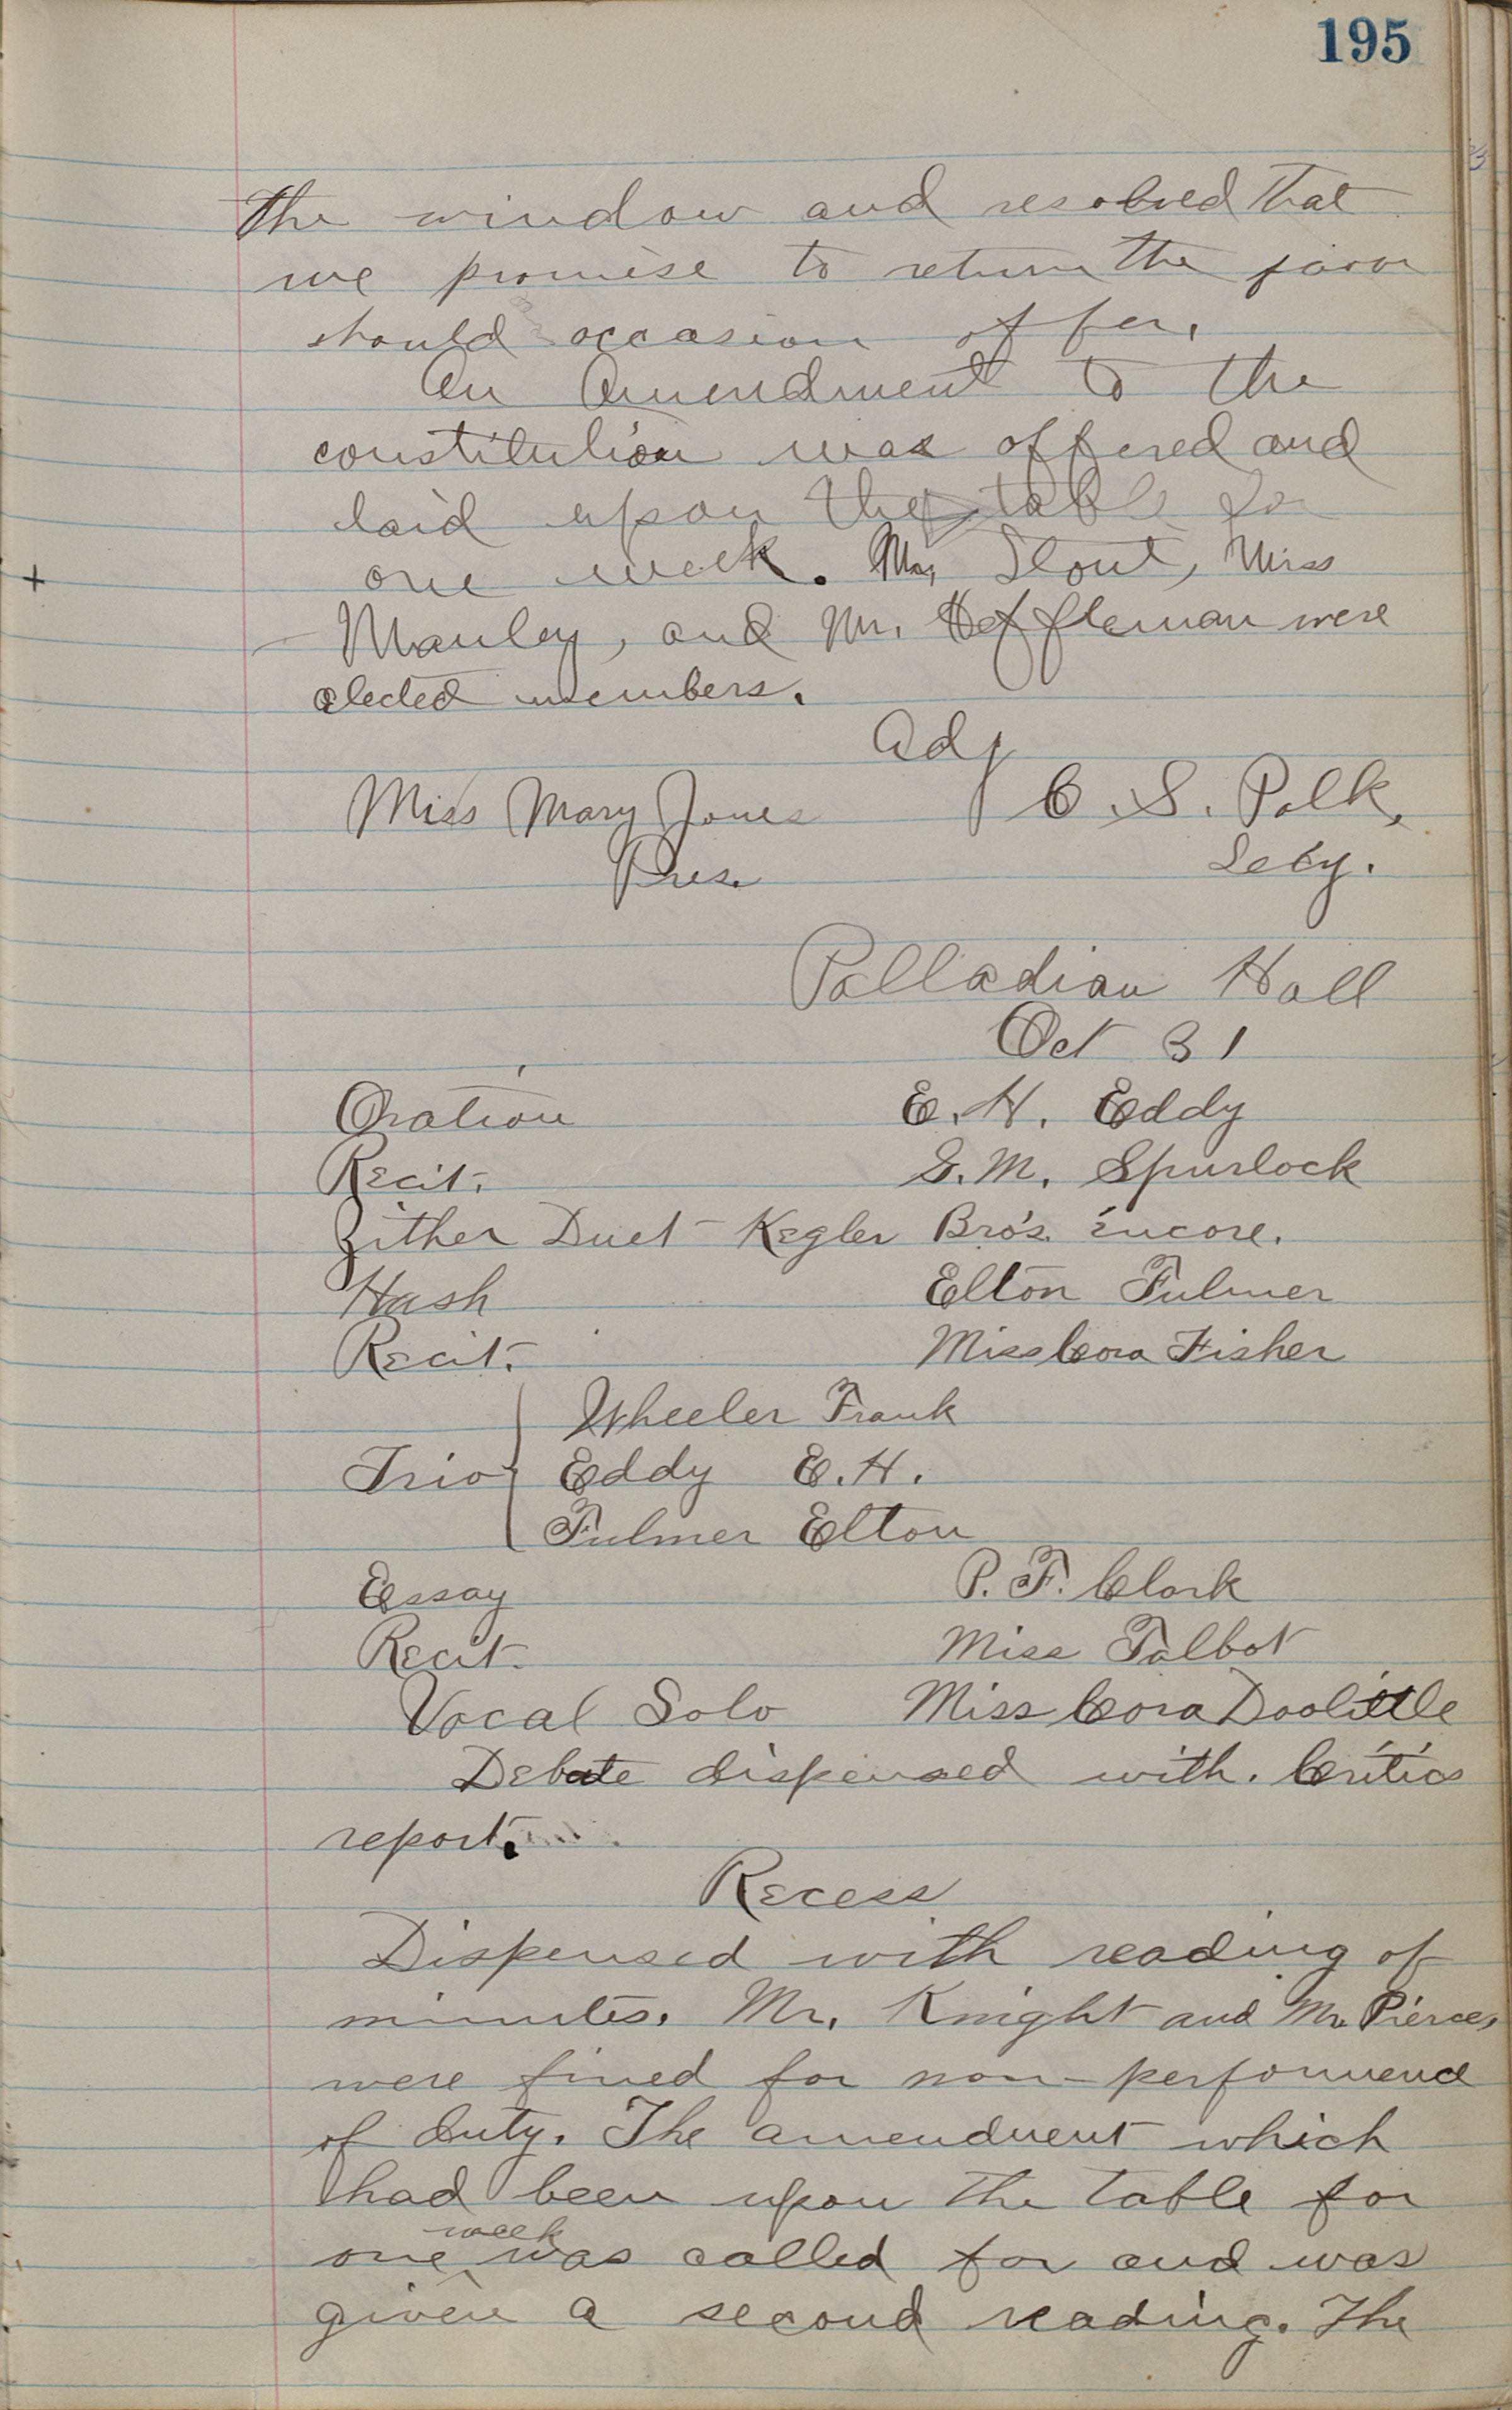 195
The window and resolved that
we promise to return the favor
should occasion offer.
An Amendment to the
constitution was offered and
laid upon the table for
one week. Mr. Stout, Miss
Manley, and Mr. Heffleman were
elected members.
Adj
Miss Mary Jones C. S. Polk,
Pres. Secy.
Palladian Hall
Oct 31
Oration E. H. Eddy
Recit. G. M. Spurlock
Zither Duet - Kegler Bro's. encore.
Hash Elton Fulmer
Recit. Miss Cora Fisher
Wheeler Frank
Trio Eddy E. H.
Fulmer Elton
Essay P. F. Clark
Recit. Miss Talbot
Vocal Solo Miss Cora Doolittle
Debate dispensed with. Critics
report.
Recess
Dispensed with reading of
minutes. Mr. Knight and Mr. Pierce,
were fined for non-performend
of duty. The amendment which
had been upon the table for
one week was called for and was
given a second reading. The